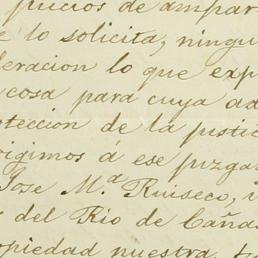 juicios de ampar
e lo solicita, ningu
deracion lo que exp
cosa para cuya ad
oteccion de la justic
rigimos á ese juzga
Jose M.a Ruiseco,
del Rio de Caña
opiedad nuestra,